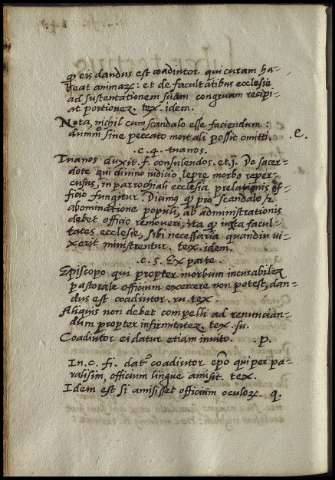 q̃ eis dandus est coadiutor qui curam ha-
beat animaꝝ: et de facultatibus ecclesie
ad sustentationem suam congruam recipi-
at portionez. tex. idem.
Nota, nichil cum scandalo esse faciendum:
dummo sine peccato mortali possit omitti. e.
.c. 4. tuanos.
Tuanos duxit. f. consulendos. et. j. De sacer-
dote qui divino iudicio, lepre morbo reper-
cusus, in parrochiali ecclesia prelationis of-
ficio fungitur. Dicimꝰ q̃ pro scandalo et
abominatione populi, ab administrationis
debet officio removeri, ita q̃ iuxta facul-
tates ecclesie, sibi necessaria quandiu vi-
xerit ministrentur. tex. idem.
.c. 5. Ex parte.
Episcopo qui propter morbum incurabilez
pastorale officium exercere non potest, dan-
dus est coadiutor. tex.
Aliquis non debet compelli ad renuncian-
dum propter infirmitatez. tex.
Coadiutor ei datur etiam invito. .p.
In. c. fi. datꝰ coadiutor ep̃o qui per pa-
ralisim, officium lingue amisit. tex.
Idem est si amisisset officium oculoꝝ. q.